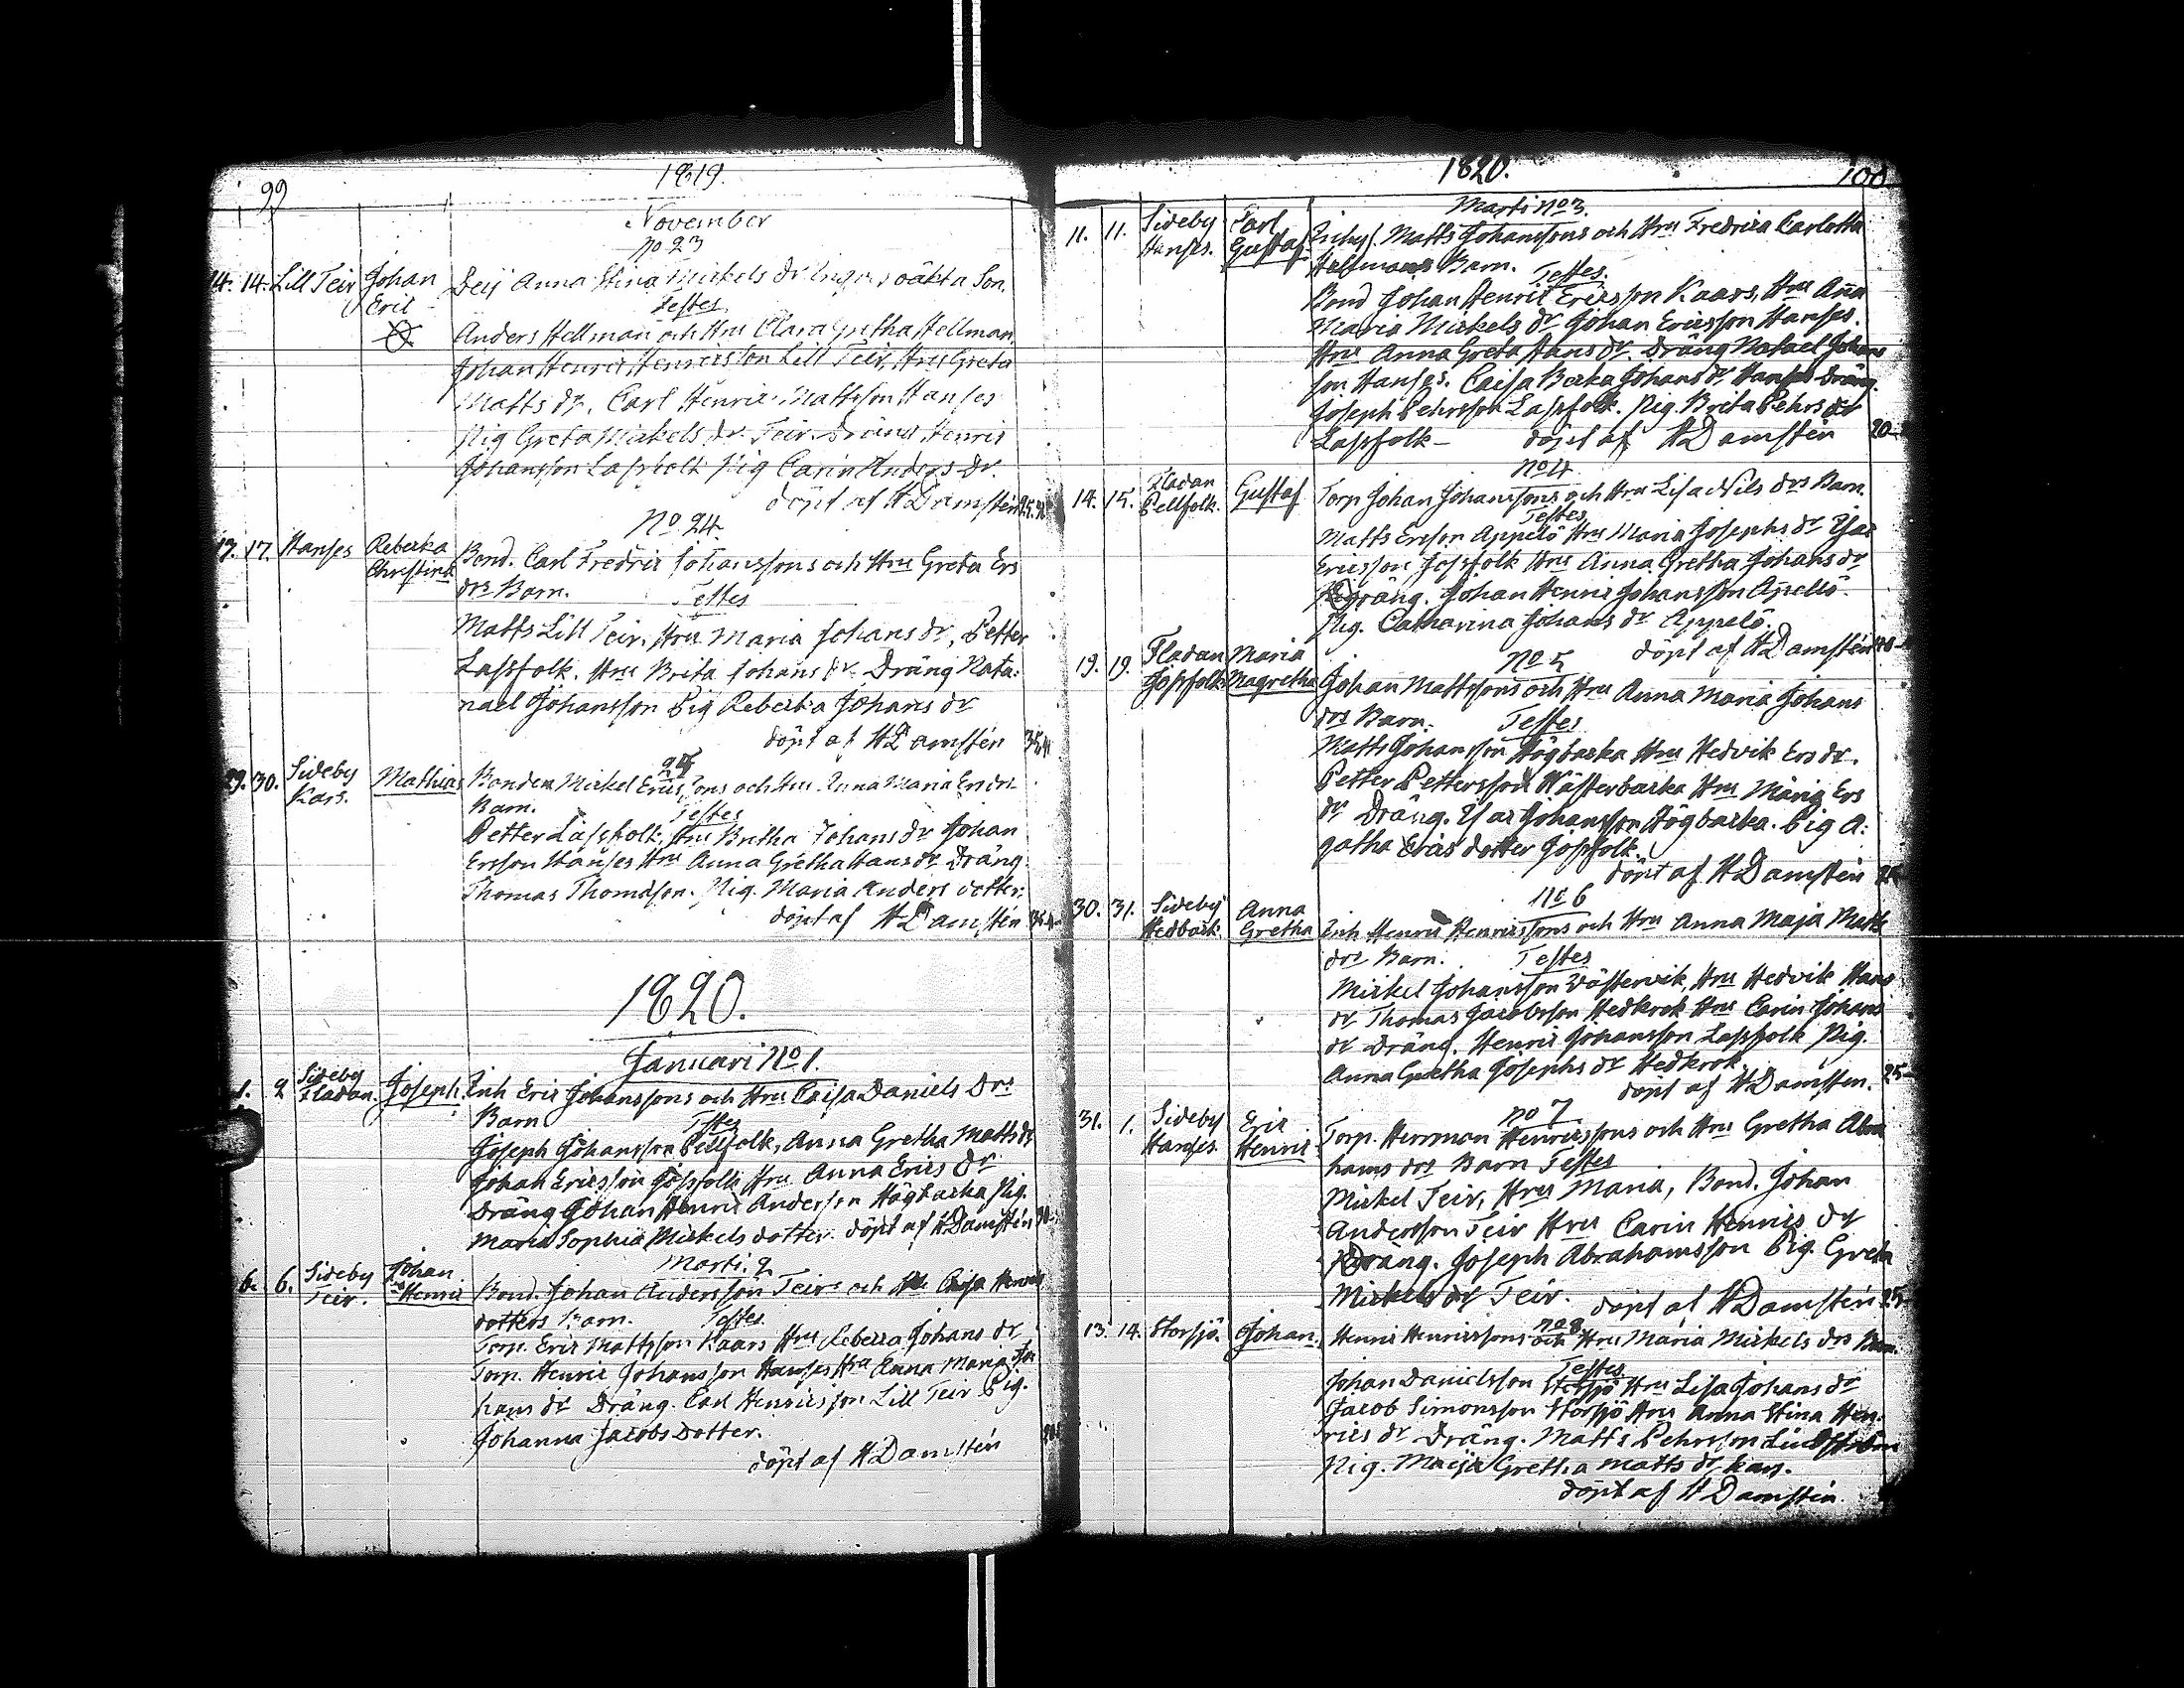 99
1819.
November
No 23
14. 14. Lill Teir Johan Deij Anna Stina Mickels dr oäkta Son.
Eric Testes
Anders Hellman och Hru Clara Gretha Hellman
Johan Henric Henricsson Lill Teir, Hru Greta
Matts dr. Carl Henric Mattsson Hanses
Pig Greta Mickels dr. Teir. Dräng Henric
Johansson Lassfolk Pig Carin Anders dr.
döpt af HDamstén
No 24.
17. 17. Hanses Rebecka Bond. Carl Fredric Johanssons och Hru Greta Ers
Christina drs Barn. Testes
Matts Lill Teir, Hru Maria Johans dr, Petter
Lassfolk. Hru Brita Johans dr. Dräng Nata:
nael Johansson Pig Rebecka Johans dr
döpt af HDamstén
25
29. 30. Sideby Mathias Bonden Mickel Ericssons och Hru Anna Maria
Kars. Barn. Testes
Petter Lassfolk, Hru Britha Johans dr Johan
Ersson Hanses Hru Anna Gretha Hans dr. Dräng
Thomas Thomasson. Pig. Maria Anders dotter.
döpt af HDamstén
1820.
Januari No 1.
1. 2 Sideby Joseph. Inh Eric Johanssons och Hru Caisa Daniels Drs
Fladan. Barn Testes
Joseph Johansson Pellfolk, Anna Gretha Matts dr
Johan Ericsson Jossfolk Hru Anna Erics Dr
Dräng Johan Henric Andersson Högbacka Pig.
Maria Sophia Mickels dotter. döpt af HDamstén
Marti. 2
6. 6. Sideby Johan Bond. Johan Andersson Teirs och Hru Caisa Henrics
Teir. Henric dotters Barn. Testes.
Torp. Eric Mattsson Kaars Hru Rebecca Johans dr
Torp. Henric Johansson Hanses Hru Anna Maria Jo
hans dr Dräng. Carl Henricsson Lill Teir Pig.
Johanna Jacobs Dotter.
döpt af HDamstén
1820. 100
Marti No 3.
11. 11. Sideby Carl Matts Johanssons och Hru Fredrica Carlotta
Hanses. Gustaf Hellmans Barn. Testes.
Bond Johan Henric Ericsson Kaars, Hru Aña
Maria Mickels dr Johan Ericsson Hanses.
Hru Anna Greta Hans dr. Dräng Natael Johans
son Hanses. Caisa Becka Johans dr. Hanses Dräng.
Joseph Pehrsson Lassfolk. Pig. Brita Pehrs dr
Lassfolk - döpt af HDamstén 20-
No 4
14. 15. Fladan Gustaf Torp Johan Johanssons och Hru Lisa Nils drs Barn.
Pellfolk. Testes
Matts Ersson Appelö Hru Maria Josephs dr Isac
Ericsson Jossfolk Hru Anna Gretha Johans dr
Dräng. Johan Henric Johansson Apellö.
Pig. Catharina Johans dr Appelö.
döpt af HDamstén
No 5
19. 19. Fladan Maria Johan Mattssons och Hru Anna Maria Johans
Jossfolk Magretha drs Barn. Testes
Matts Johansson Högbacka Hru Hedvik Ers dr.
Petter Pettersson Wästerbacka Hru Marig Ers
dr Dräng. Isac Johansson Högbacka. Pig A:
gatha Erics dotter Jossfolk.
döpt af HDamstén
No 6
30. 31. Sideby Anna Inh Henric Henricssons och Hru Anna Maja Matts
Hedback. Gretha drs Barn. Testes
Mickel Johansson Västervik, Hru Hedvik Hans
dr Thomas Jacobsson Hedkrok Hru Carin Johans
dr Dräng. Henric Johansson Lassfolk Pig.
Anna Gretha Josephs dr Hedkrok
döpt af HDamsten. 25-
No 7
31. 1. Sideby Eric Torp. Herrman Henricssons och Hru Gretha Abra
Hanses. Henric hams drs Barn Testes
Mickel Teir, Hru Maria, Bond. Johan
Andersson Teir Hru Carin Henrics dr
Dräng. Joseph Abrahamsson Pig. Greta
Mickels dr Teir. döpt af HDamstén 25-
No 8
13. 14. Storsjö. Johan. Henric Henricssons och Hru Maria Mickels drs Barn.
Testes
Johan Danielsson Storsjö Hru Lisa Johans dr
Jacob Simonsson Storsjö Hru Anna Stina Hen:
rics dr Dräng. Matts Pehrsson
Pig. Maija Gretha Matts dr, kars.
döpt af HDamstén.